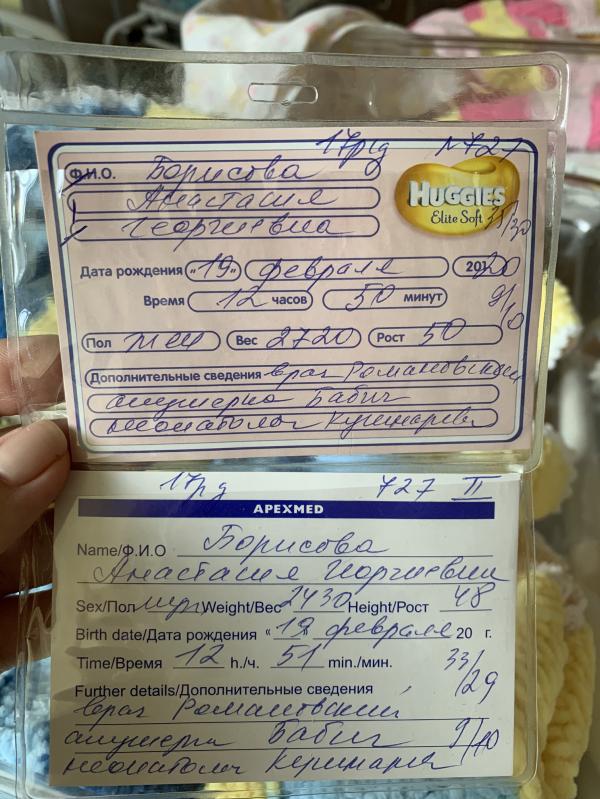 17рд N727
Ф.И.О. Борисова
Анастасия
Георгиевна
HUGGIES
Elite Soft
33/30
Дата рождения «19» февраля 2020
9/10
Время 12 часов 50 минут
Пол Вес 2720 Рост 50
Дополнительные сведения врач Романовский
акушерка Бабич
неонатолог
17рд 727 II
APEXMED
Name/Ф.И.О Борисова
Анастасия Георгиевна
Sex/Пол Weight/Вес 2430 Height/Рост 48
Birth date/Дата рождения «19» февраля 20 г.
Time/Время 12 h./ч. 51 min./мин. 33/
Further details/Дополнительные сведения /29
врач Романовский
акушерка Бабич 9/10
неонатолог